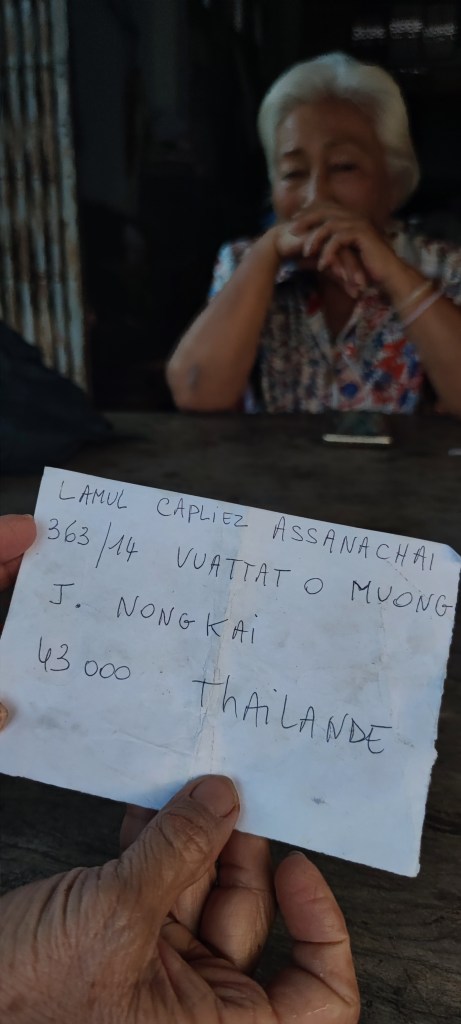 LAMUL CAPLIEZ ASSANACHAI
363/14 VUATTAT O MUONG
J. NONGKAi
43 000 ThAiLANDE